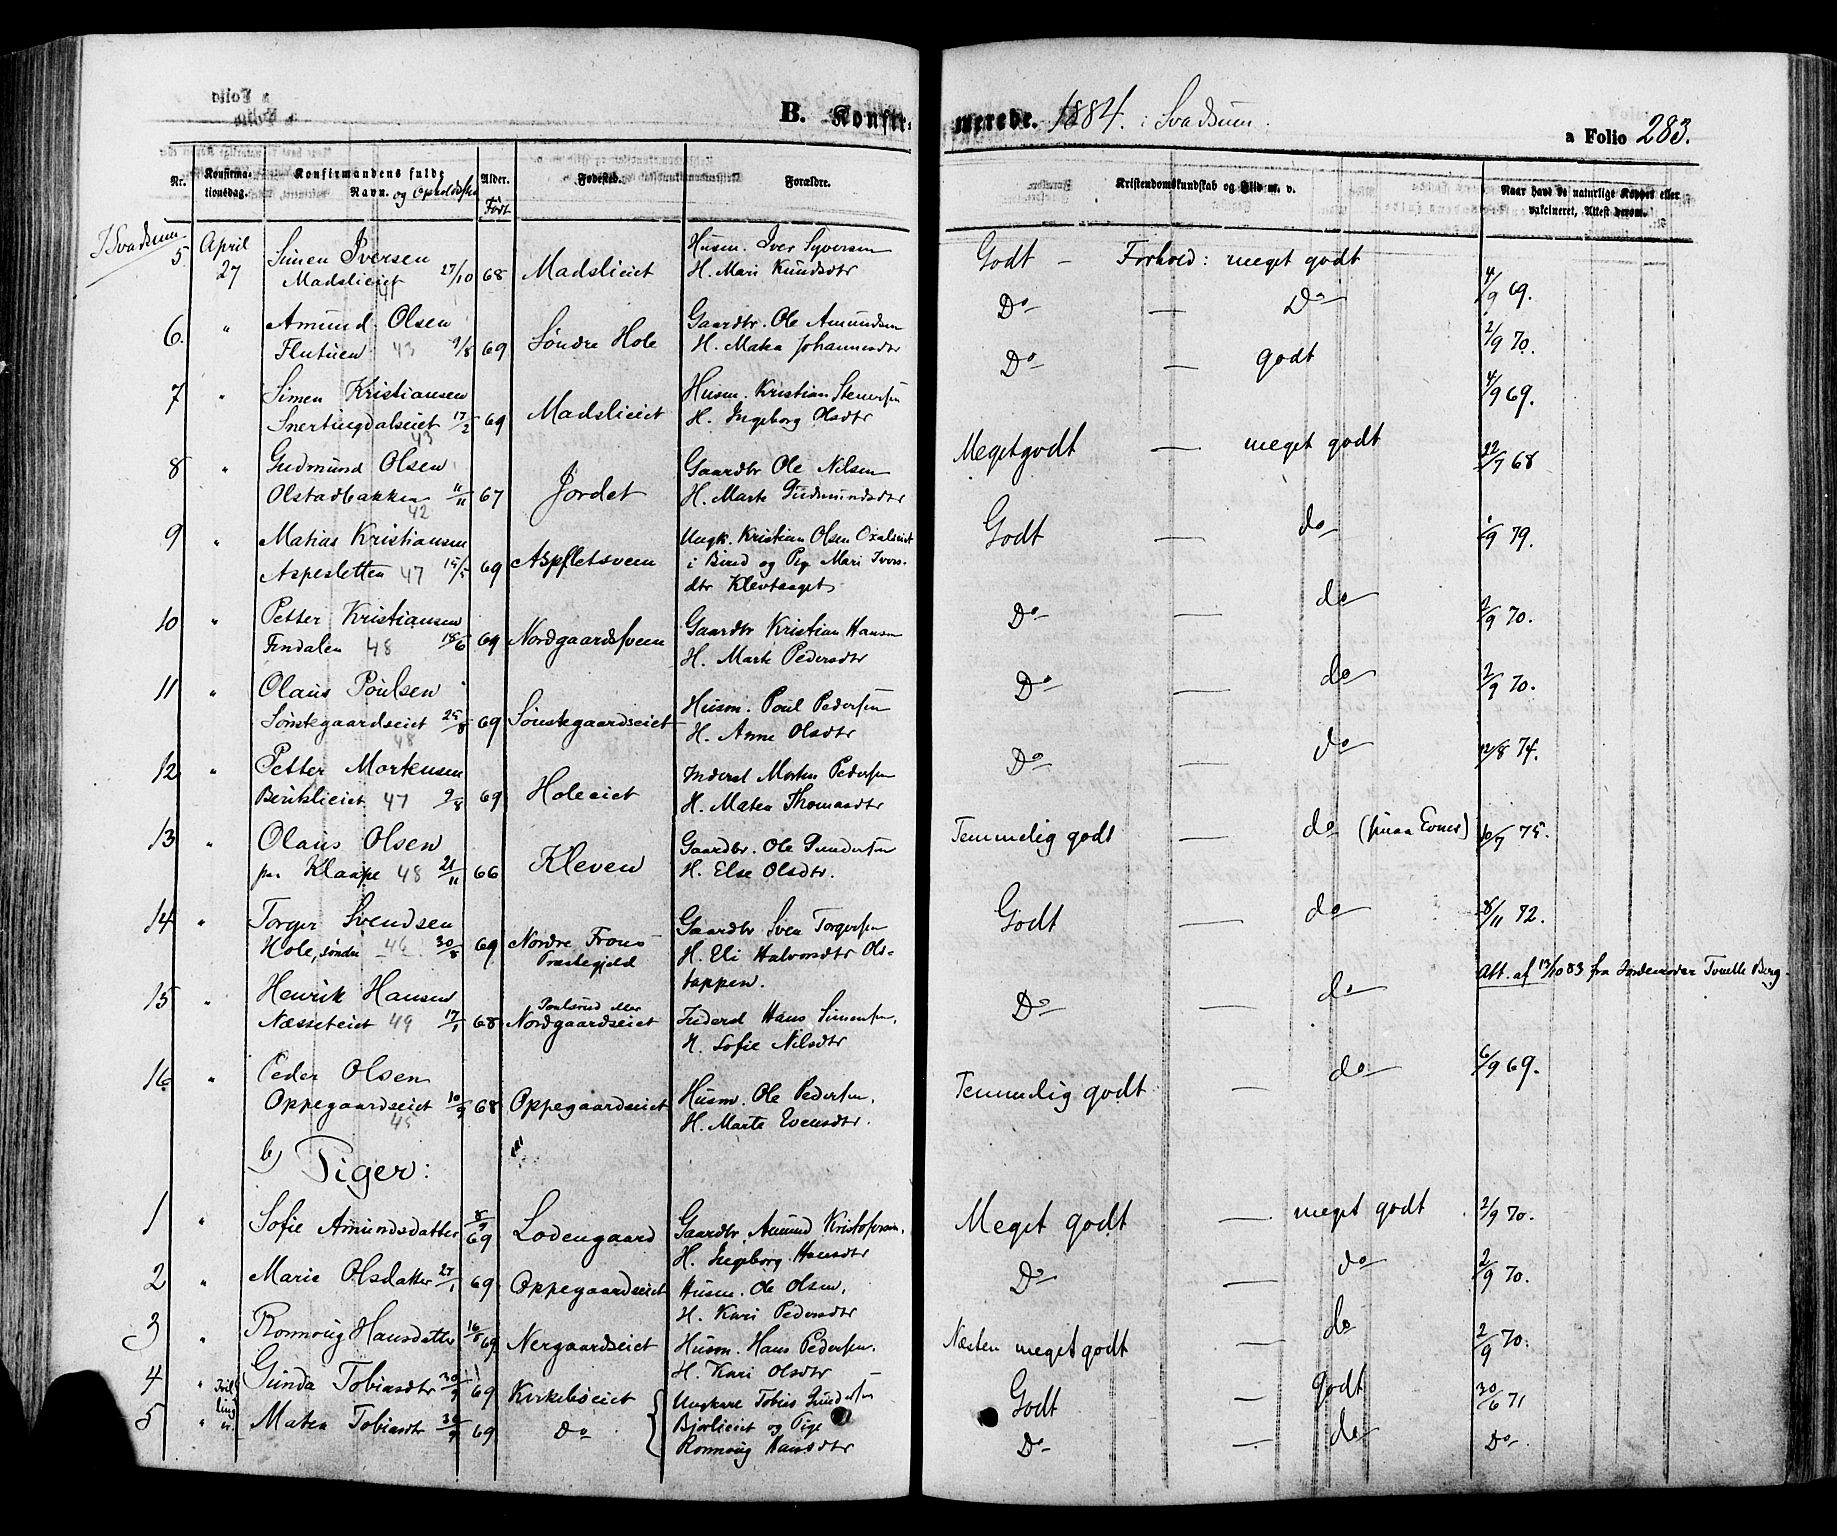 B. Konfirmerede. 1884. i Svadsum.
a Folio 283.
Nr.
Konfirmationsdag.
Konfirmandens fulde Navn. og Opholdssted
Alder. Født
Fødested.
Forældre.
Kristendomskundskab og Flid m. v.
Naar havt de naturlige Kopper eller vakcineret, Attest derom.
I Svadsum
5. April 27 Simen Iversen 27/10 68 Madslieiet Husm. Iver Syversen Godt — Forhold: meget godt 4/9 69.
Madslieiet 41 H. Mari Knudsdtr
6. " Amund Olsen 9/8 69 Søndre Hole Gaardbr. Ole Amundsen Do — Do 2/9 70.
Flutuen 43 H. Matea Johannesdtr
7 " Simen Kristiansen 17/2 69 Madslieiet Husm. Kristian Stenersen Do — godt 4/9 69.
Snertingdalseiet 43 H. Ingeborg Olsdtr
8 " Gudmund Olsen 11/11 67 Jordet Gaardbr Ole Nilsen Meget godt — meget godt 22/7 68
Olstadbakken 42 H. Marte Gudmundsdtr
9 " Matias Kristiansen 15/5 69 Aspfletsveen Ungk. Kristian Olsen Oxalseiet Godt — do 1/9 79.
Aspesletten 47 i Bird og Pige Mari Ivers-
dtr Klevhaget
10 " Petter Kristiansen 18/6 69 Nordgaardsveen Gaardbr Kristian Hansen Do — do 2/9 70.
Findalen 48 H. Marte Pedersdtr
11 " Olaus Poulsen 25/8 69 Sønstegaardseiet Husm. Poul Pedersen Do — do 2/9 70.
Sønstegaardseiet 48 H. Anne Olsdtr
12 " Petter Mortensen 9/8 69 Holeeiet Inderst Morten Pedersen Do — do 12/8 74.
Berikslieiet 47 H. Matea Thomasdtr
13 " Olaus Olsen 21/11 66 Kleven Gaardbr. Ole Gundersen Temmelig godt — do (smaa Evner) 10/7 75.
paa Klaape 48 H. Else Olsdtr.
14 " Torger Svendsen 30/5 69 Nordre Frons Gaardbr Sven Torgersen Godt — do 8/11 72.
Hole, søndre 46 Præstegjeld H. Eli Halvorsdtr Ols-
tappen.
15 " Henrik Hansen 17/1 68 Poulsrud eller Inderst Hans Simensen, Do — do Att. af 13/10 83 fra Jordemoder Tonette Berg.
Næsseteiet 49 Nordgaardseiet H. Sofie Nilsdtr
16. " Peder Olsen 10/9 68 Oppegaardseiet Husm. Ole Pedersen, Temmelig godt — do 6/9 69.
Oppegaardseiet 45 H. Marte Evensdtr.
b) Piger:
1 " Sofie Amundsdatter 8/9 69 Lodengaard Gaardbr. Amund Kristofersen, Meget godt — meget godt 2/9 70.
H. Ingeborg Hansdtr
2 " Marie Olsdatter 27/1 69 Oppegaardseiet Husm. Ole Olsen, Do — do 2/9 70.
H. Kari Pedersdtr
3 " Ronnoug Hansdatter 16/5 69 Nergaardseiet Husm. Hans Pedersen. Næsten meget godt — do 2/9 70.
H. Kari Olsdtr
4 " Tvillinger Gunda Tobiasdtr 30/9 69 Kirkebøeiet Ungkarl Tobias Gundersen Godt — godt 30/6 71
5 " Matea Tobiasdtr 30/9 69 Do Bjørlieiet og Pige Do — do Do
Ronnoug Hansdtr